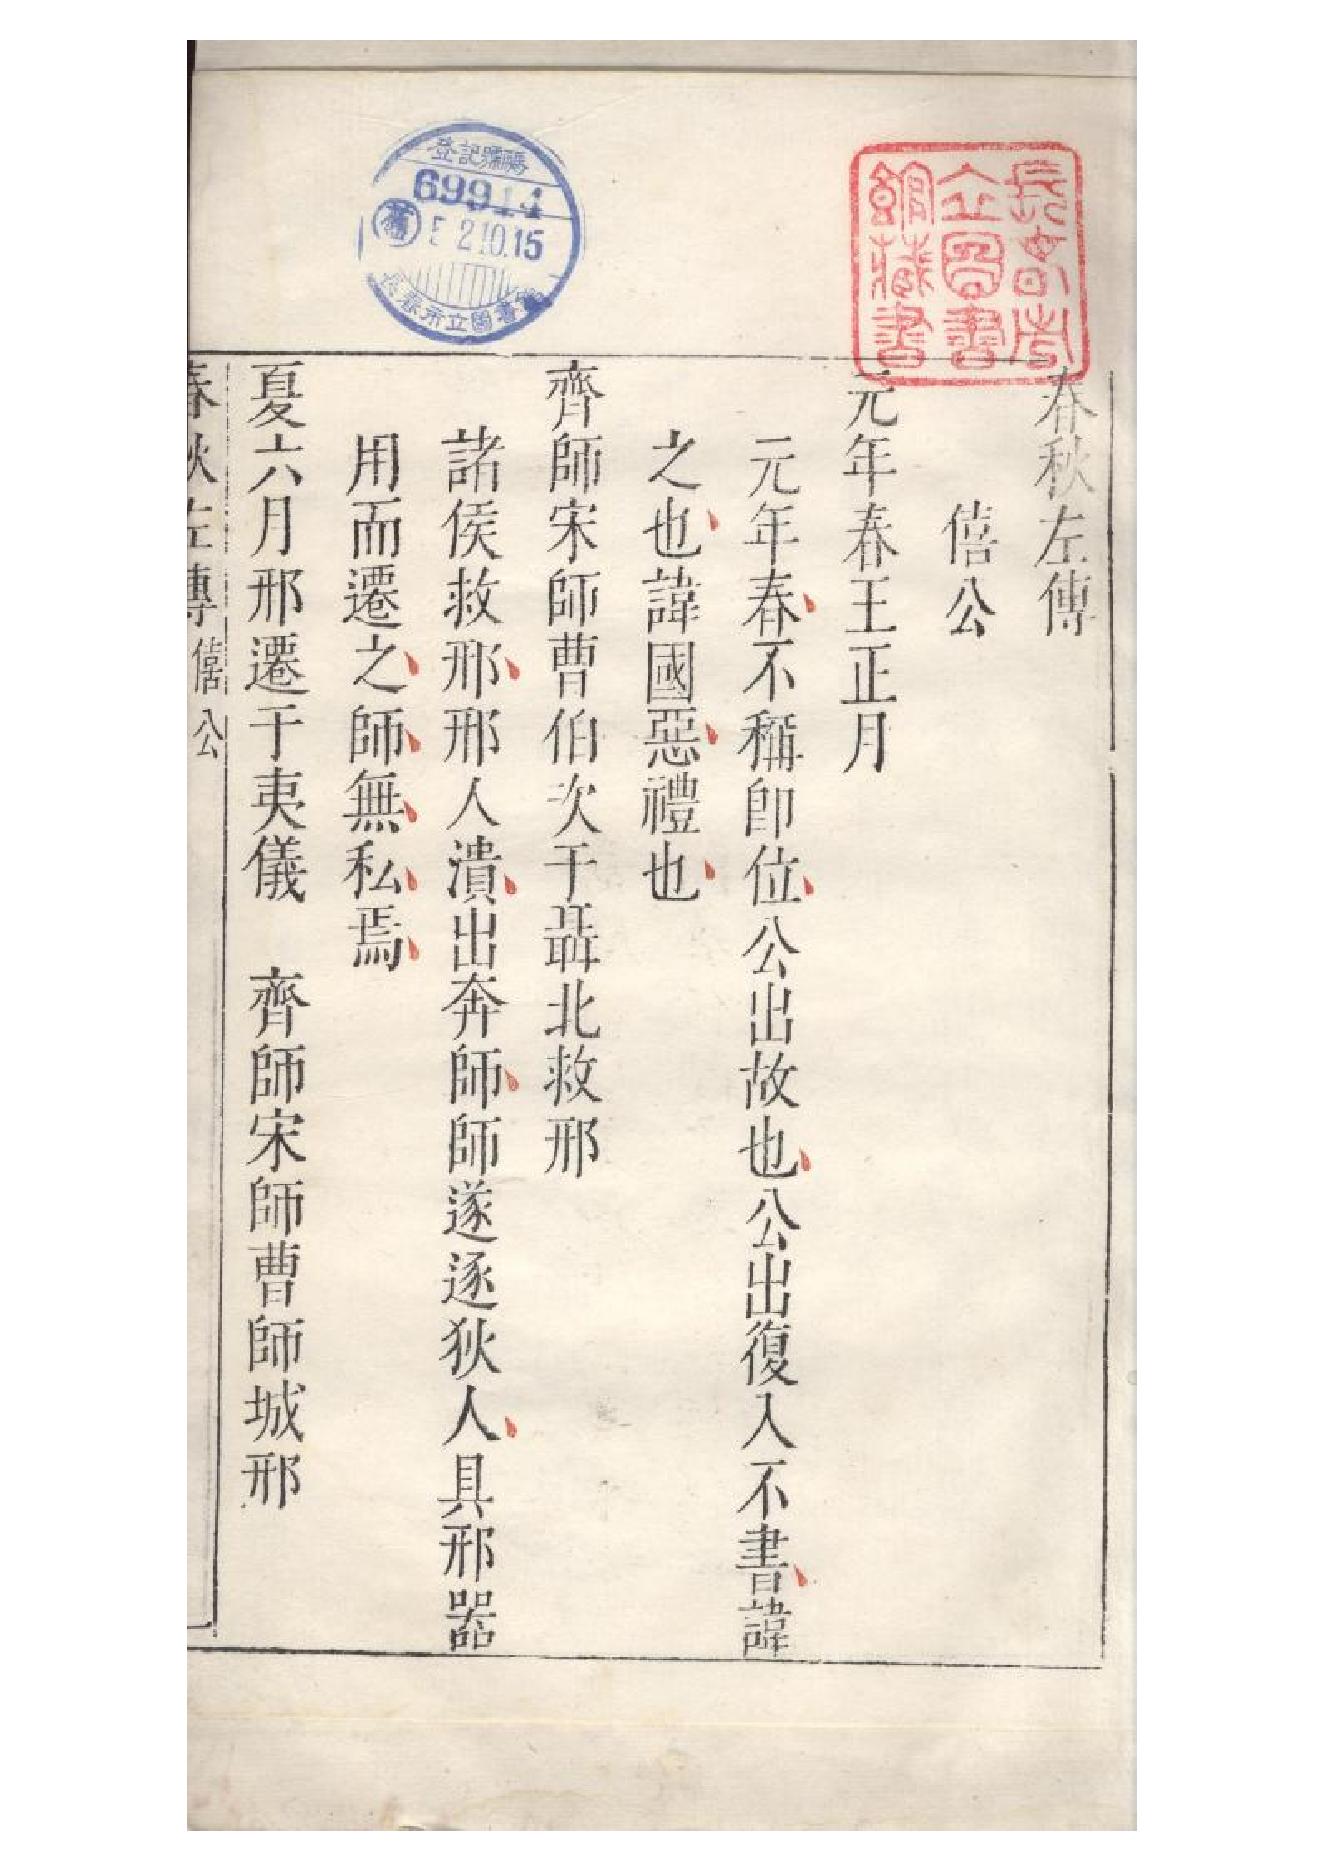 春秋左傳
僖公
元年春王正月
元年春不稱即位公出故也公出復入不書諱
之也諱國惡禮也
齊師宋師曹伯次于聶北救邢
諸侯救邢邢人潰出奔師師遂逐狄人具邢器
用而遷之師無私焉
夏六月邢遷于夷儀　齊師宋師曹師城邢
春秋左傳 僖公
長春市
立圖書
館藏書
登記號碼
69914
舊 2.10.15
長春市立圖書館